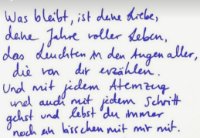 Was bleibt, ist deine Liebe,
deine Jahre voller Leben,
das Leuchten in den Augen aller,
die von dir erzählen.
Und mit jedem Atemzug
und auch mit jedem Schritt
gehst und lebst du immer
noch ein bisschen mit mir mit.